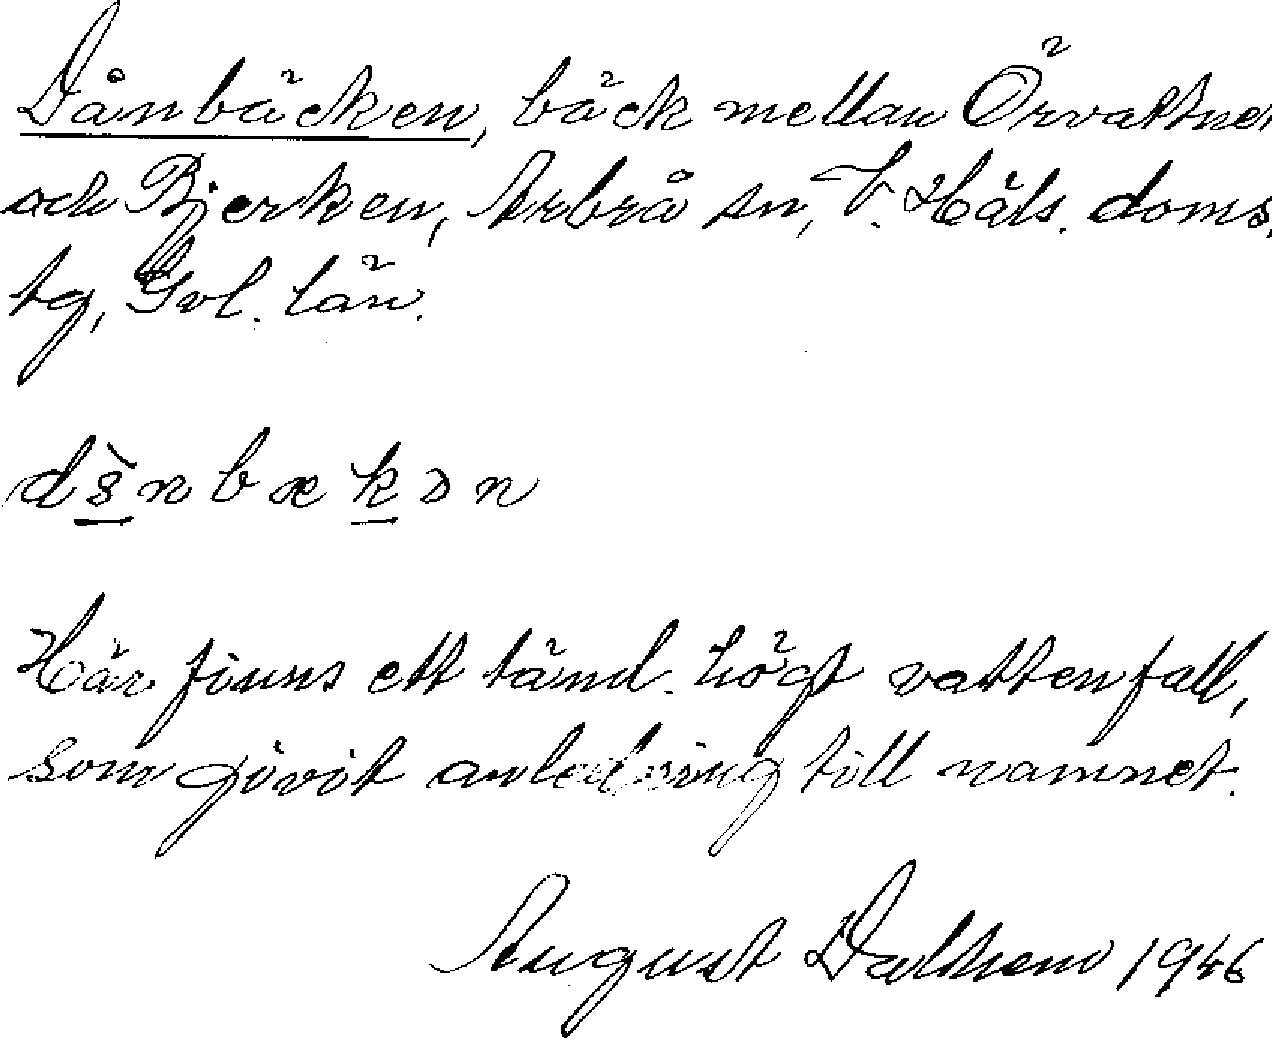 Dånbäcken, bäck mellan Örvattnet
och Bjerken, Arbrå sn, V. Häls. doms.
tg, Gvl. län.
Här finns ett tänd. högt vattenfall,
som givit anledning till namnet.
August Dalhem 1946